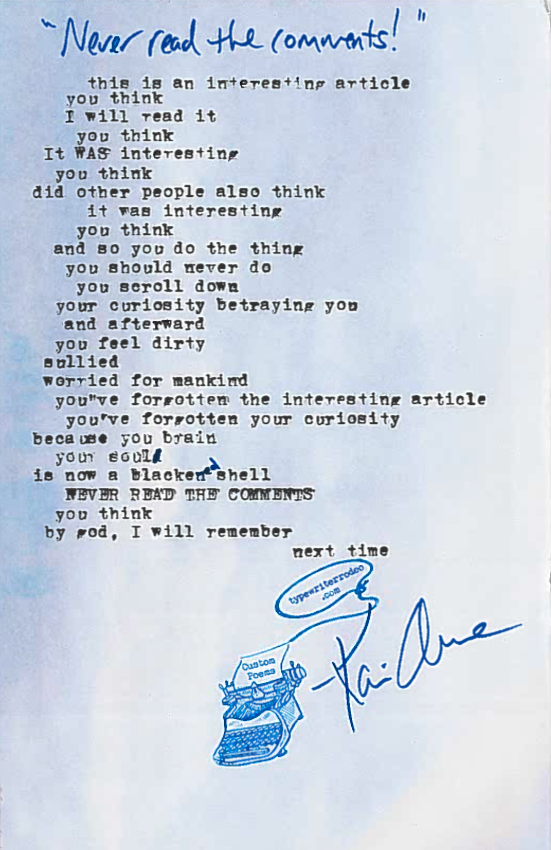 "Never read the comments!"
this is an interesting article
you think
I will read it
you think
It WAS interesting
you think
did other people also think
it was interesting
you think
and so you do the thing
you should never do
you scroll down
your curiosity betraying you
and afterward
you feel dirty
sullied
worried for mankind
you"ve forgotten the interesting article
you've forgotten your curiosity
because you brain
your soul
is now a blackened shell
NEVER READ THE COMMENTS
you think
by god, I will remember
next time
typewriterrodeo
.com
Custom
Poems